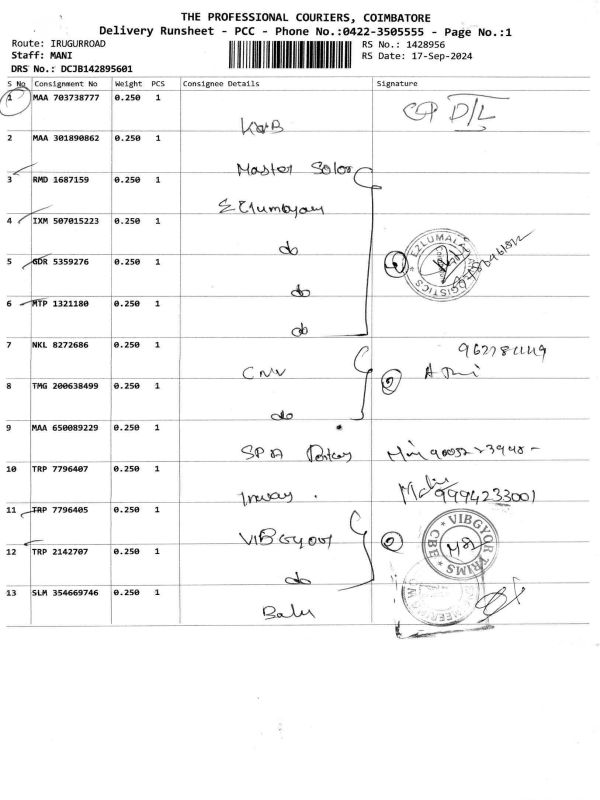 THE PROFESSIONAL COURIERS, COIMBATORE
Delivery Runsheet - PCC - Phone No.:0422-3505555 - Page No.:1
Route: IRUGURROAD RS No.: 1428956
Staff: MANI RS Date: 17-Sep-2024
DRS No.: DCJB142895601
S No Consignment No Weight PCS Consignee Details Signature
1 MAA 703738777 0.250 1
D/L
KVB
2 MAA 301890862 0.250 1
Master Solor
3 RMD 1687159 0.250 1
4 IXM 507015223 0.250 1
do
EZLUMALAI LOGISTICS
5 GDR 5359276 0.250 1
do
6 MTP 1321180 0.250 1
do
7 NKL 8272686 0.250 1
CNV
8 TMG 200638499 0.250 1
2
do
9 MAA 650089229 0.250 1
SPA
10 TRP 7796407 0.250 1
9994233001
11 TRP 7796405 0.250 1
VIBGYOR
2
VIBGYOR TRIMS CBE
12 TRP 2142707 0.250 1
do
13 SLM 354669746 0.250 1
Balu